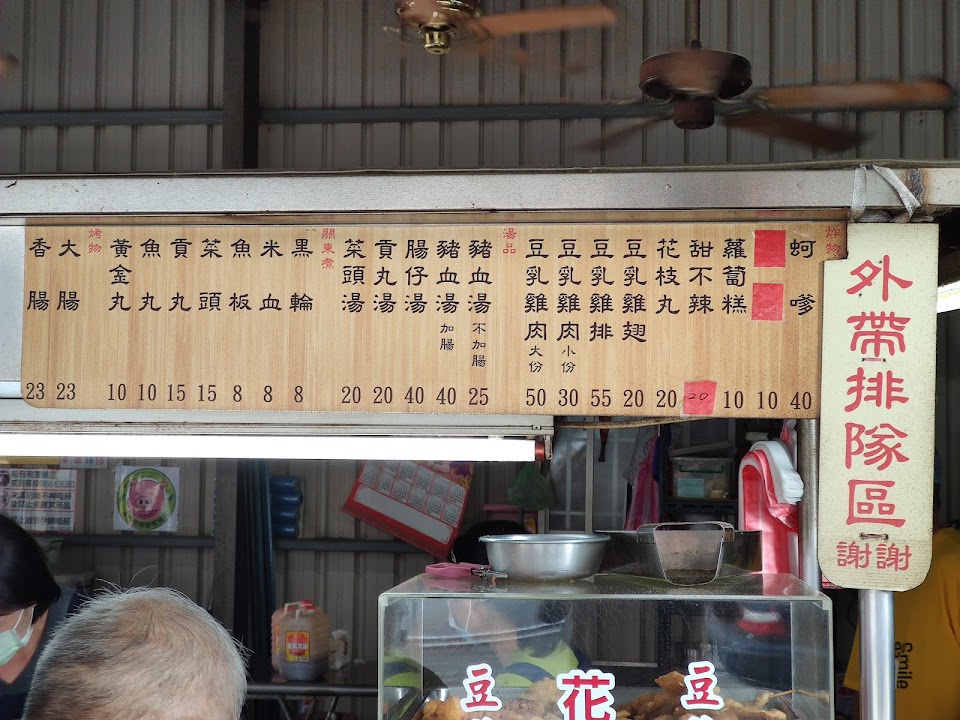 炸物
蚵嗲 40
10
蘿蔔糕 10
甜不辣 20
花枝丸 20
豆乳雞翅 20
豆乳雞排 55
豆乳雞肉小份 30
豆乳雞肉大份 50
湯品
豬血湯不加腸 25
豬血湯加腸 40
腸仔湯 40
貢丸湯 20
菜頭湯 20
關東煮
黑輪 8
米血 8
魚板 8
菜頭 15
貢丸 15
魚丸 10
黃金丸 10
烤物
大腸 23
香腸 23
外帶排隊區
謝謝
豆
花
豆
smile